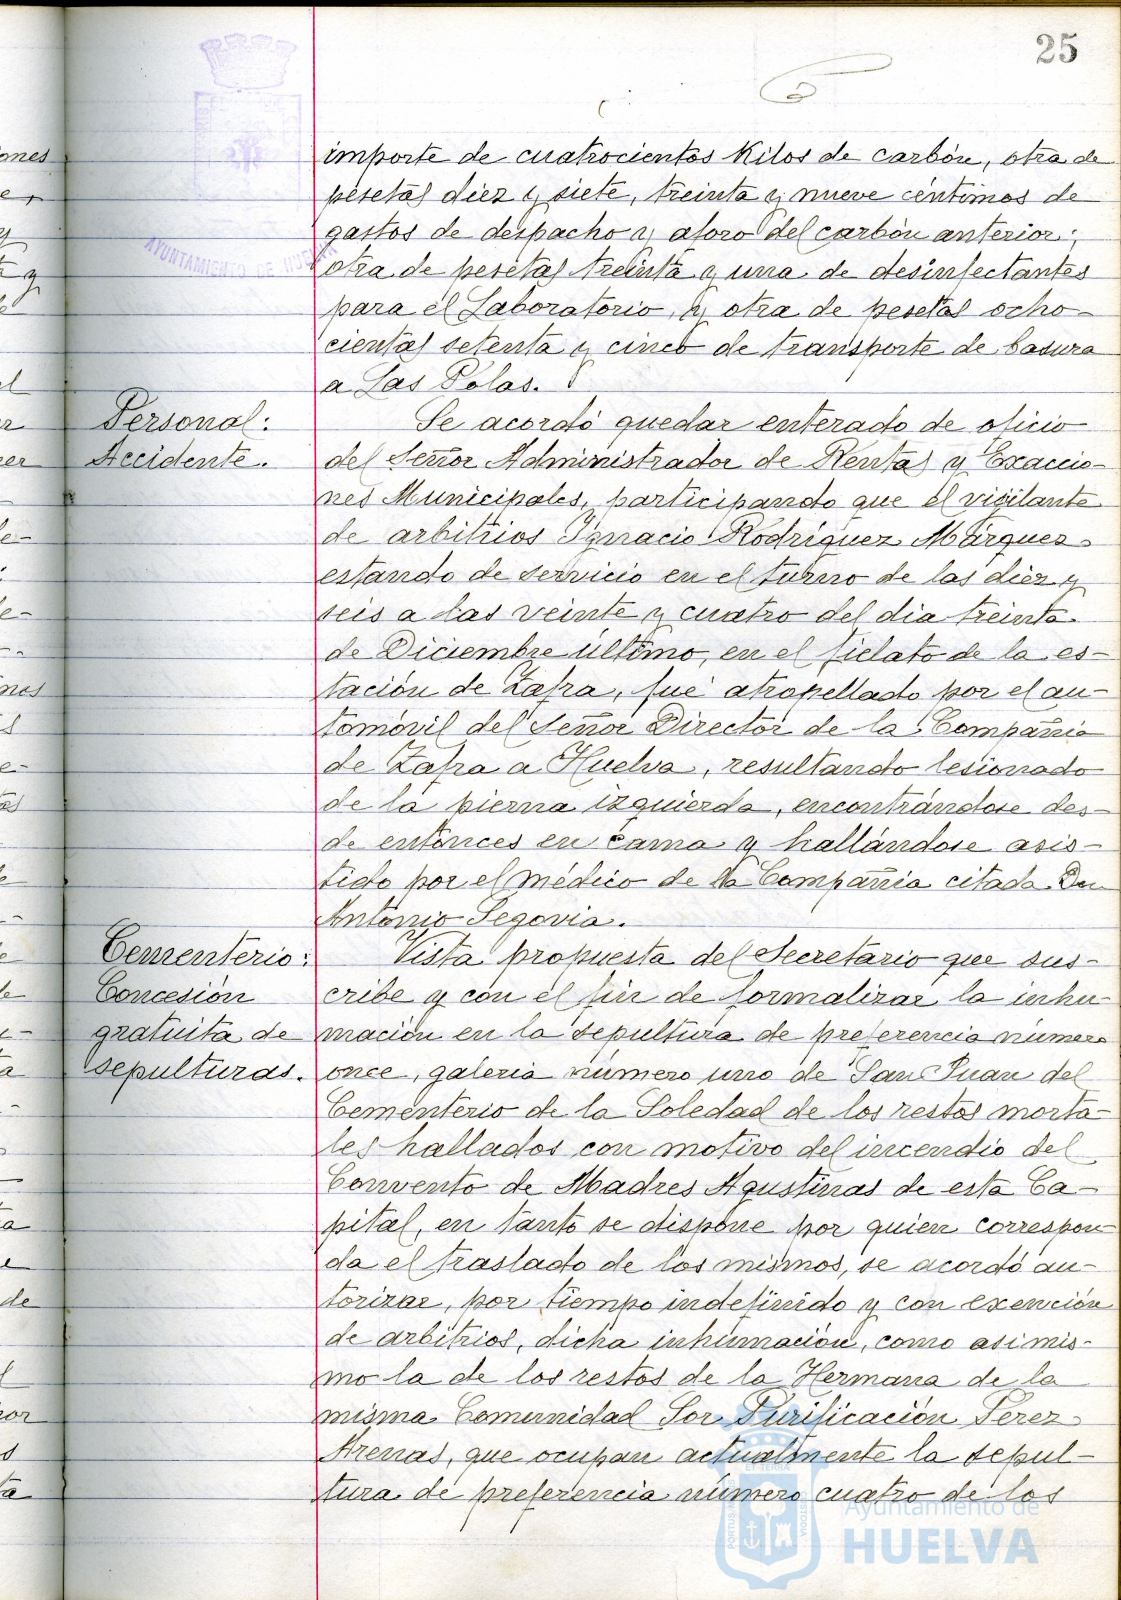 25
AYUNTAMIENTO DE HUELVA
importe de cuatrocientos Kilos de carbón, otra de
pesetas diez y siete, treinta y nueve céntimos de
gastos de despacho y aforo del carbón anterior;
otra de pesetas treinta y una de desinfectantes
para el Laboratorio, y otra de pesetas ocho-
cientas setenta y cinco de transporte de basura
a Las Polas.
Personal:
Accidente.
Se acordó quedar enterado de oficio
del Señor Administrador de Rentas y Exaccio-
nes Municipales, participando que el vigilante
de arbitrios Ignacio Rodríguez Márquez
estando de servicio en el turno de las diez y
seis a las veinte y cuatro del dia treinta
de Diciembre último, en el fielato de la es-
tación de Zafra, fue atropellado por el au-
tomóvil del Señor Director de la Compañia
de Zafra a Huelva, resultando lesionado
de la pierna izquierda, encontrándose des-
de entonces en cama y hallándose asis-
tido por el médico de la Compañia citada Don
Antonio Segovia.
Cementerio:
Concesión
gratuita de
sepulturas.
Vista propuesta del Secretario que sus-
cribe y con el fin de formalizar la inhu-
mación en la sepultura de preferencia número
once, galeria número uno de San Juan del
Cementerio de la Soledad de los restos morta-
les hallados con motivo del incendio del
Convento de Madres Agustinas de esta Ca-
pital, en tanto se dispone por quien correspon-
da el traslado de los mismos, se acordó au-
torizar, por tiempo indefinido y con exención
de arbitrios, dicha inhumación, como asimis-
mo la de los restos de la Hermana de la
misma Comunidad Sor Purificación Perez
Arenas, que ocupan actualmente la sepul-
tura de preferencia número cuatro de los
Ayuntamiento de
HUELVA